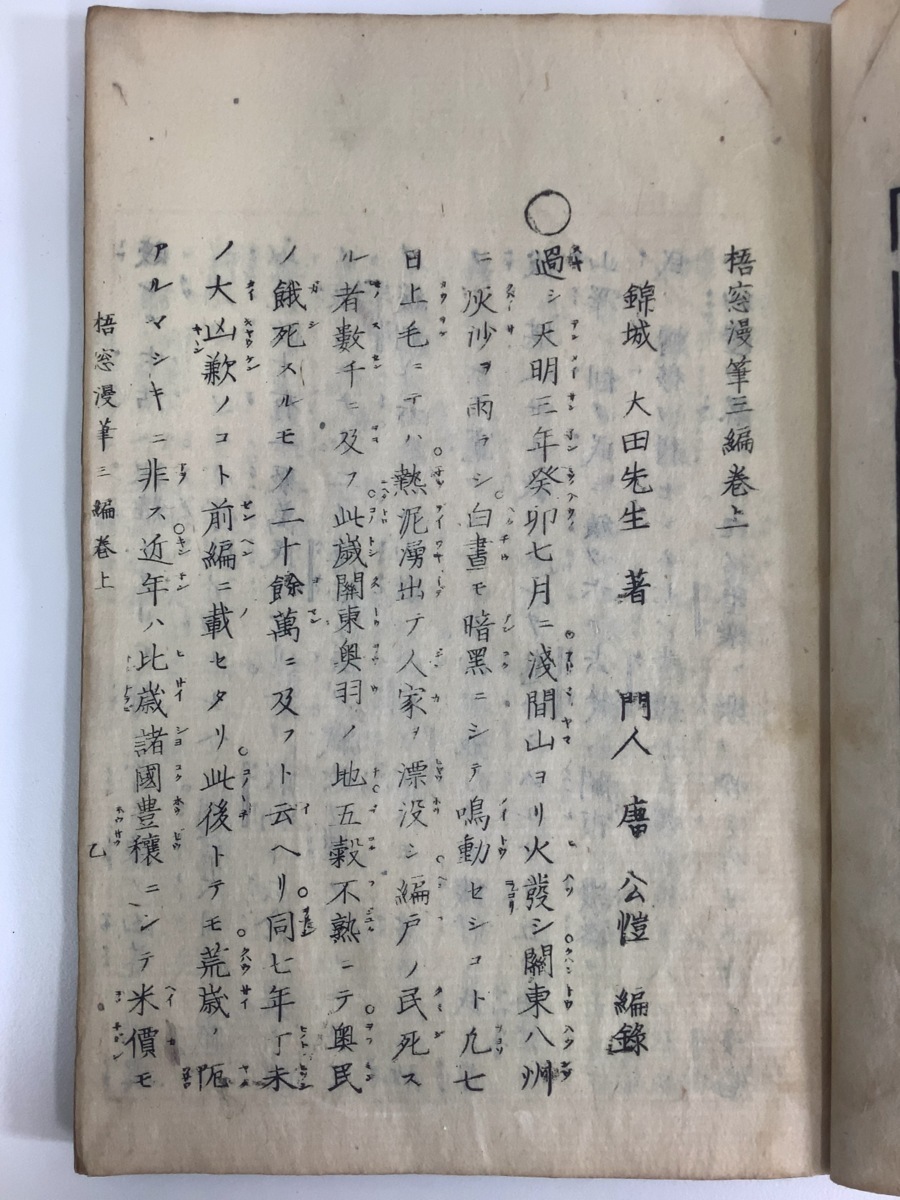 梧窓漫筆三編巻上
錦城 大田先生 著 門人 唐 公愷 編錄
○過シ天明三年癸卯七月ニ淺間山ヨリ火發シ關東八州
ニ灰沙ヲ雨ラシ白晝モ暗黑ニシテ鳴動セシコト凡七
日上毛ニテハ熱泥湧出テ人家ヲ漂没シ編戸ノ民死ス
ル者數千ニ及フ此歲關東奥羽ノ地五穀不熟ニテ奥民
ノ餓死スルモノ二十餘萬ニ及フト云ヘリ同七年丁未
ノ大凶歉ノコト前編ニ載セタリ此後トテモ荒歳ノ阨
アルマシキニ非ス近年ハ比歳諸國豊穰ニシテ米價モ
梧窓漫筆三編巻上 乙